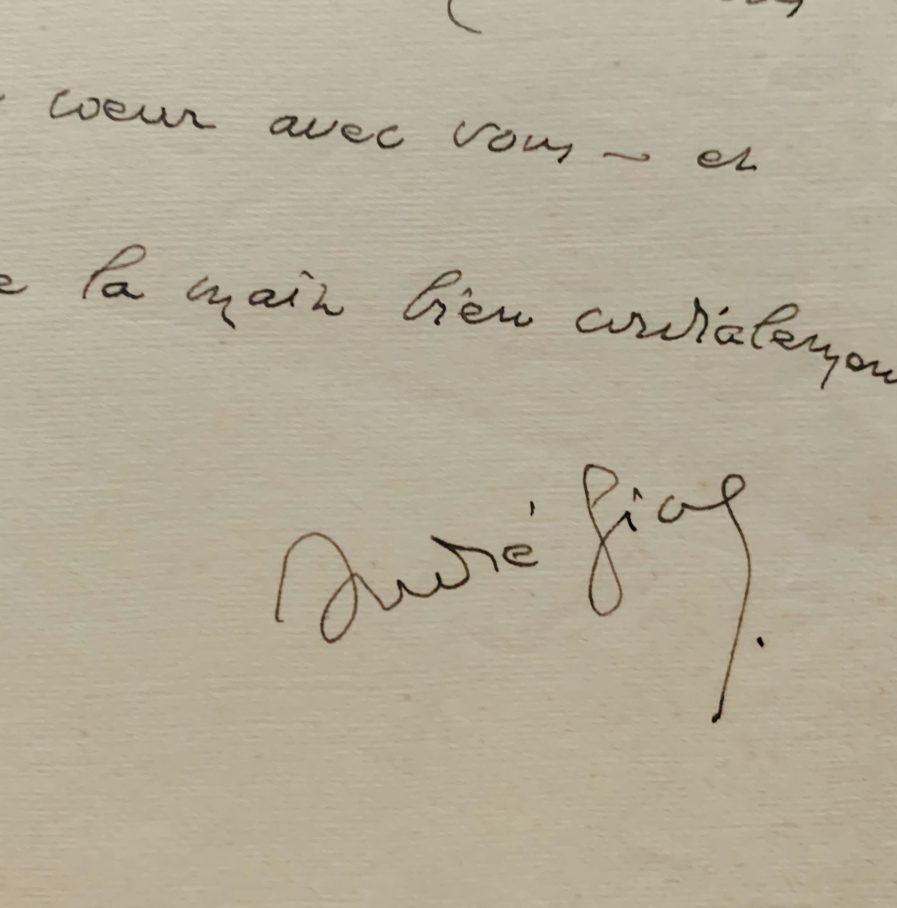 coeur avec vous — et
la main bien cordialemen
André Gide.